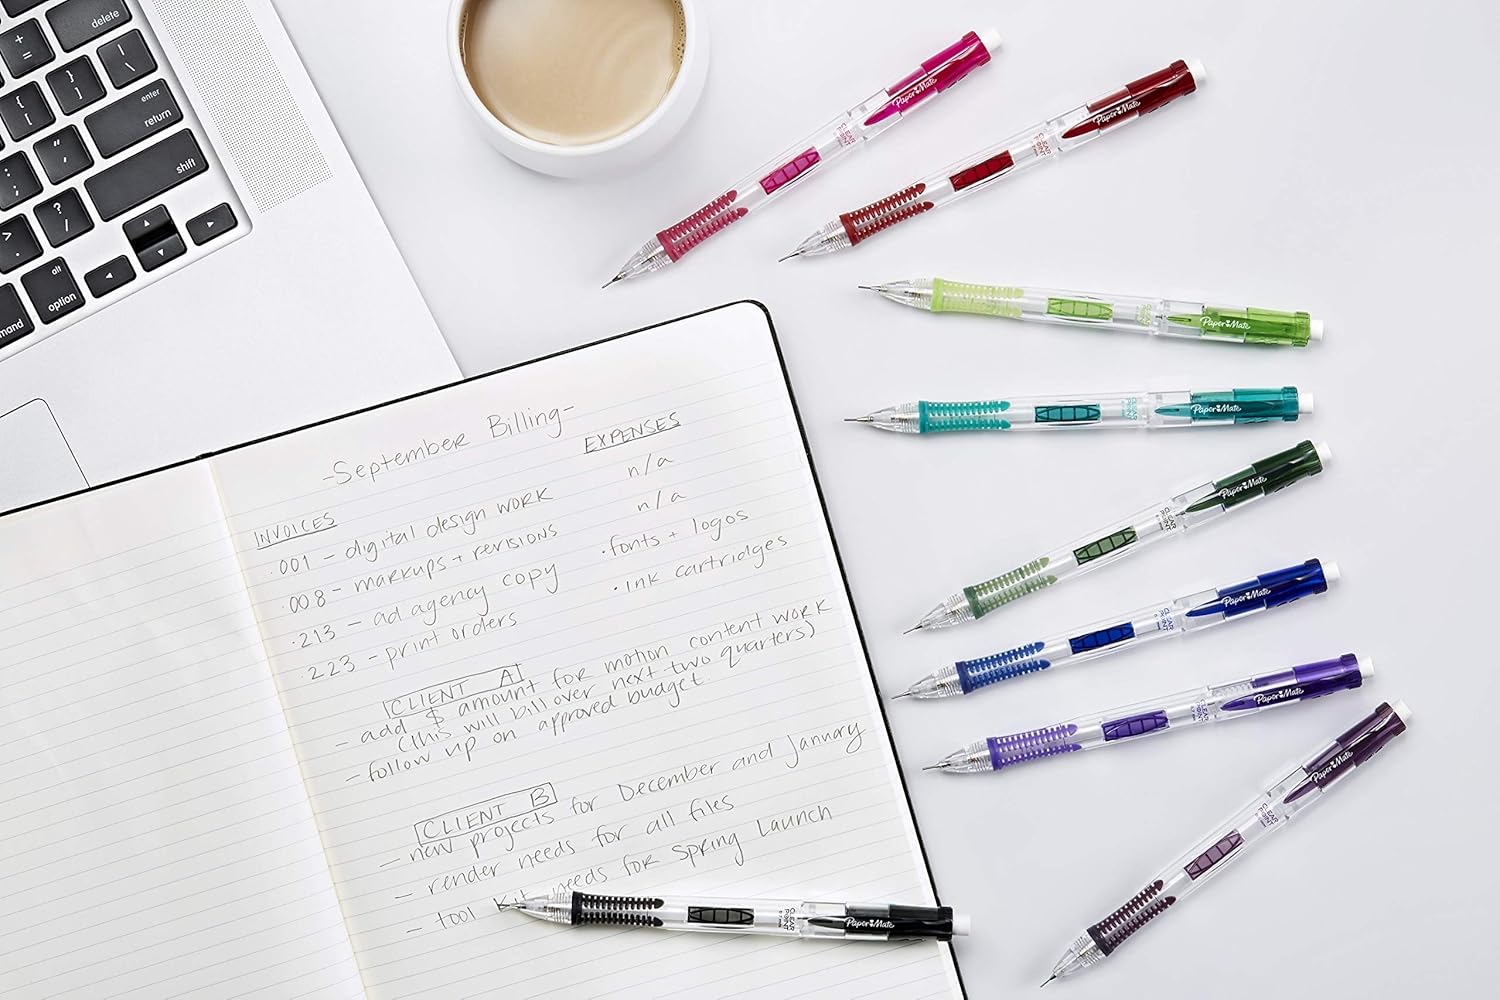 delete
+
=
{
[
}
]
|
\
enter
return
:
;
"
'
shift
>
.
?
/
alt
option
mand
-September Billing-
INVOICES
.001 - digital design work
.008 - markups + revisions
.213 - ad agency copy
.223 - print orders
EXPENSES
n/a
n/a
·fonts + logos
·ink cartridges
CLIENT A
- add $ amount for motion content work
(this will bill over next two quarters)
- follow up on approved budget.
CLIENT B
- new projects for December and January
- render needs for all files
- tool kit needs for spring launch
Paper Mate
CLEAR POINT
Paper Mate
CLEAR POINT
Paper Mate
CLEAR POINT
Paper Mate
CLEAR POINT
Paper Mate
CLEAR POINT
Paper Mate
CLEAR POINT
Paper Mate
CLEAR POINT
0.7mm
Paper Mate
CLEAR POINT
Paper Mate
CLEAR POINT
0.7mm